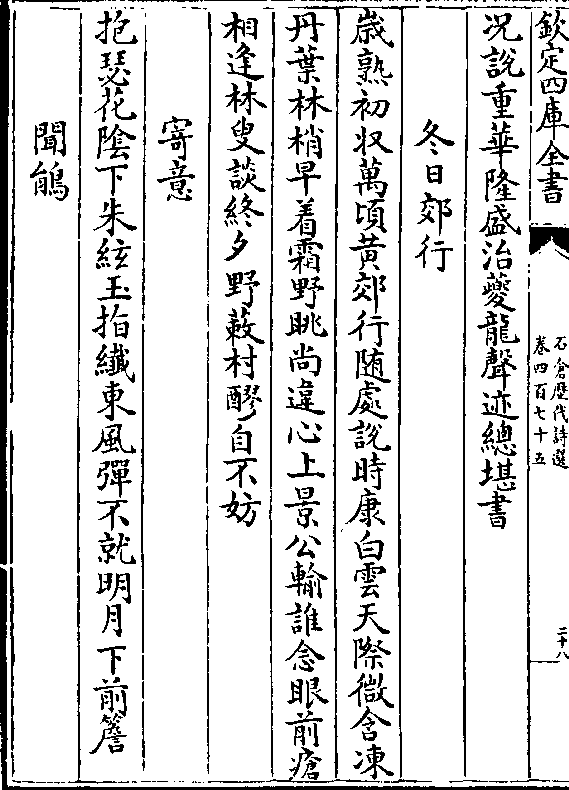 欽定四庫全書
石倉歷代詩選
卷四百七十五
二十八
况說重華隆盛治夔龍聲迹總堪書
冬日郊行
歲熟初收萬頃黃郊行随處說時康白雲天際微含凍
丹葉林梢早着霜野眺尚違心上景公輸誰念眼前瘡
相逢林叟談終夕野蔌村醪自不妨
寄意
抱瑟花陰下朱絃玉指纎東風彈不就明月下前簷
聞鵲